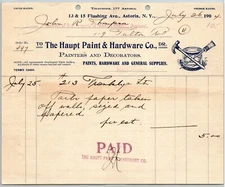 TELEPHONE, 177 ASTORIA.
13 & 15 Flushing Ave., Astoria, N. Y., July 24 1904
John R Thompson
Fulton
TO The Haupt Paint & Hardware Co., DR.
PAINTERS AND DECORATORS.
PAINTS, HARDWARE AND GENERAL SUPPLIES.
TERMS CASH.
July 25th 213 Franklyn St
Parlor paper taken
off walls, sized and
papered
per est. 5.00
PAID
THE HAUPT PAINT & HARDWARE CO.